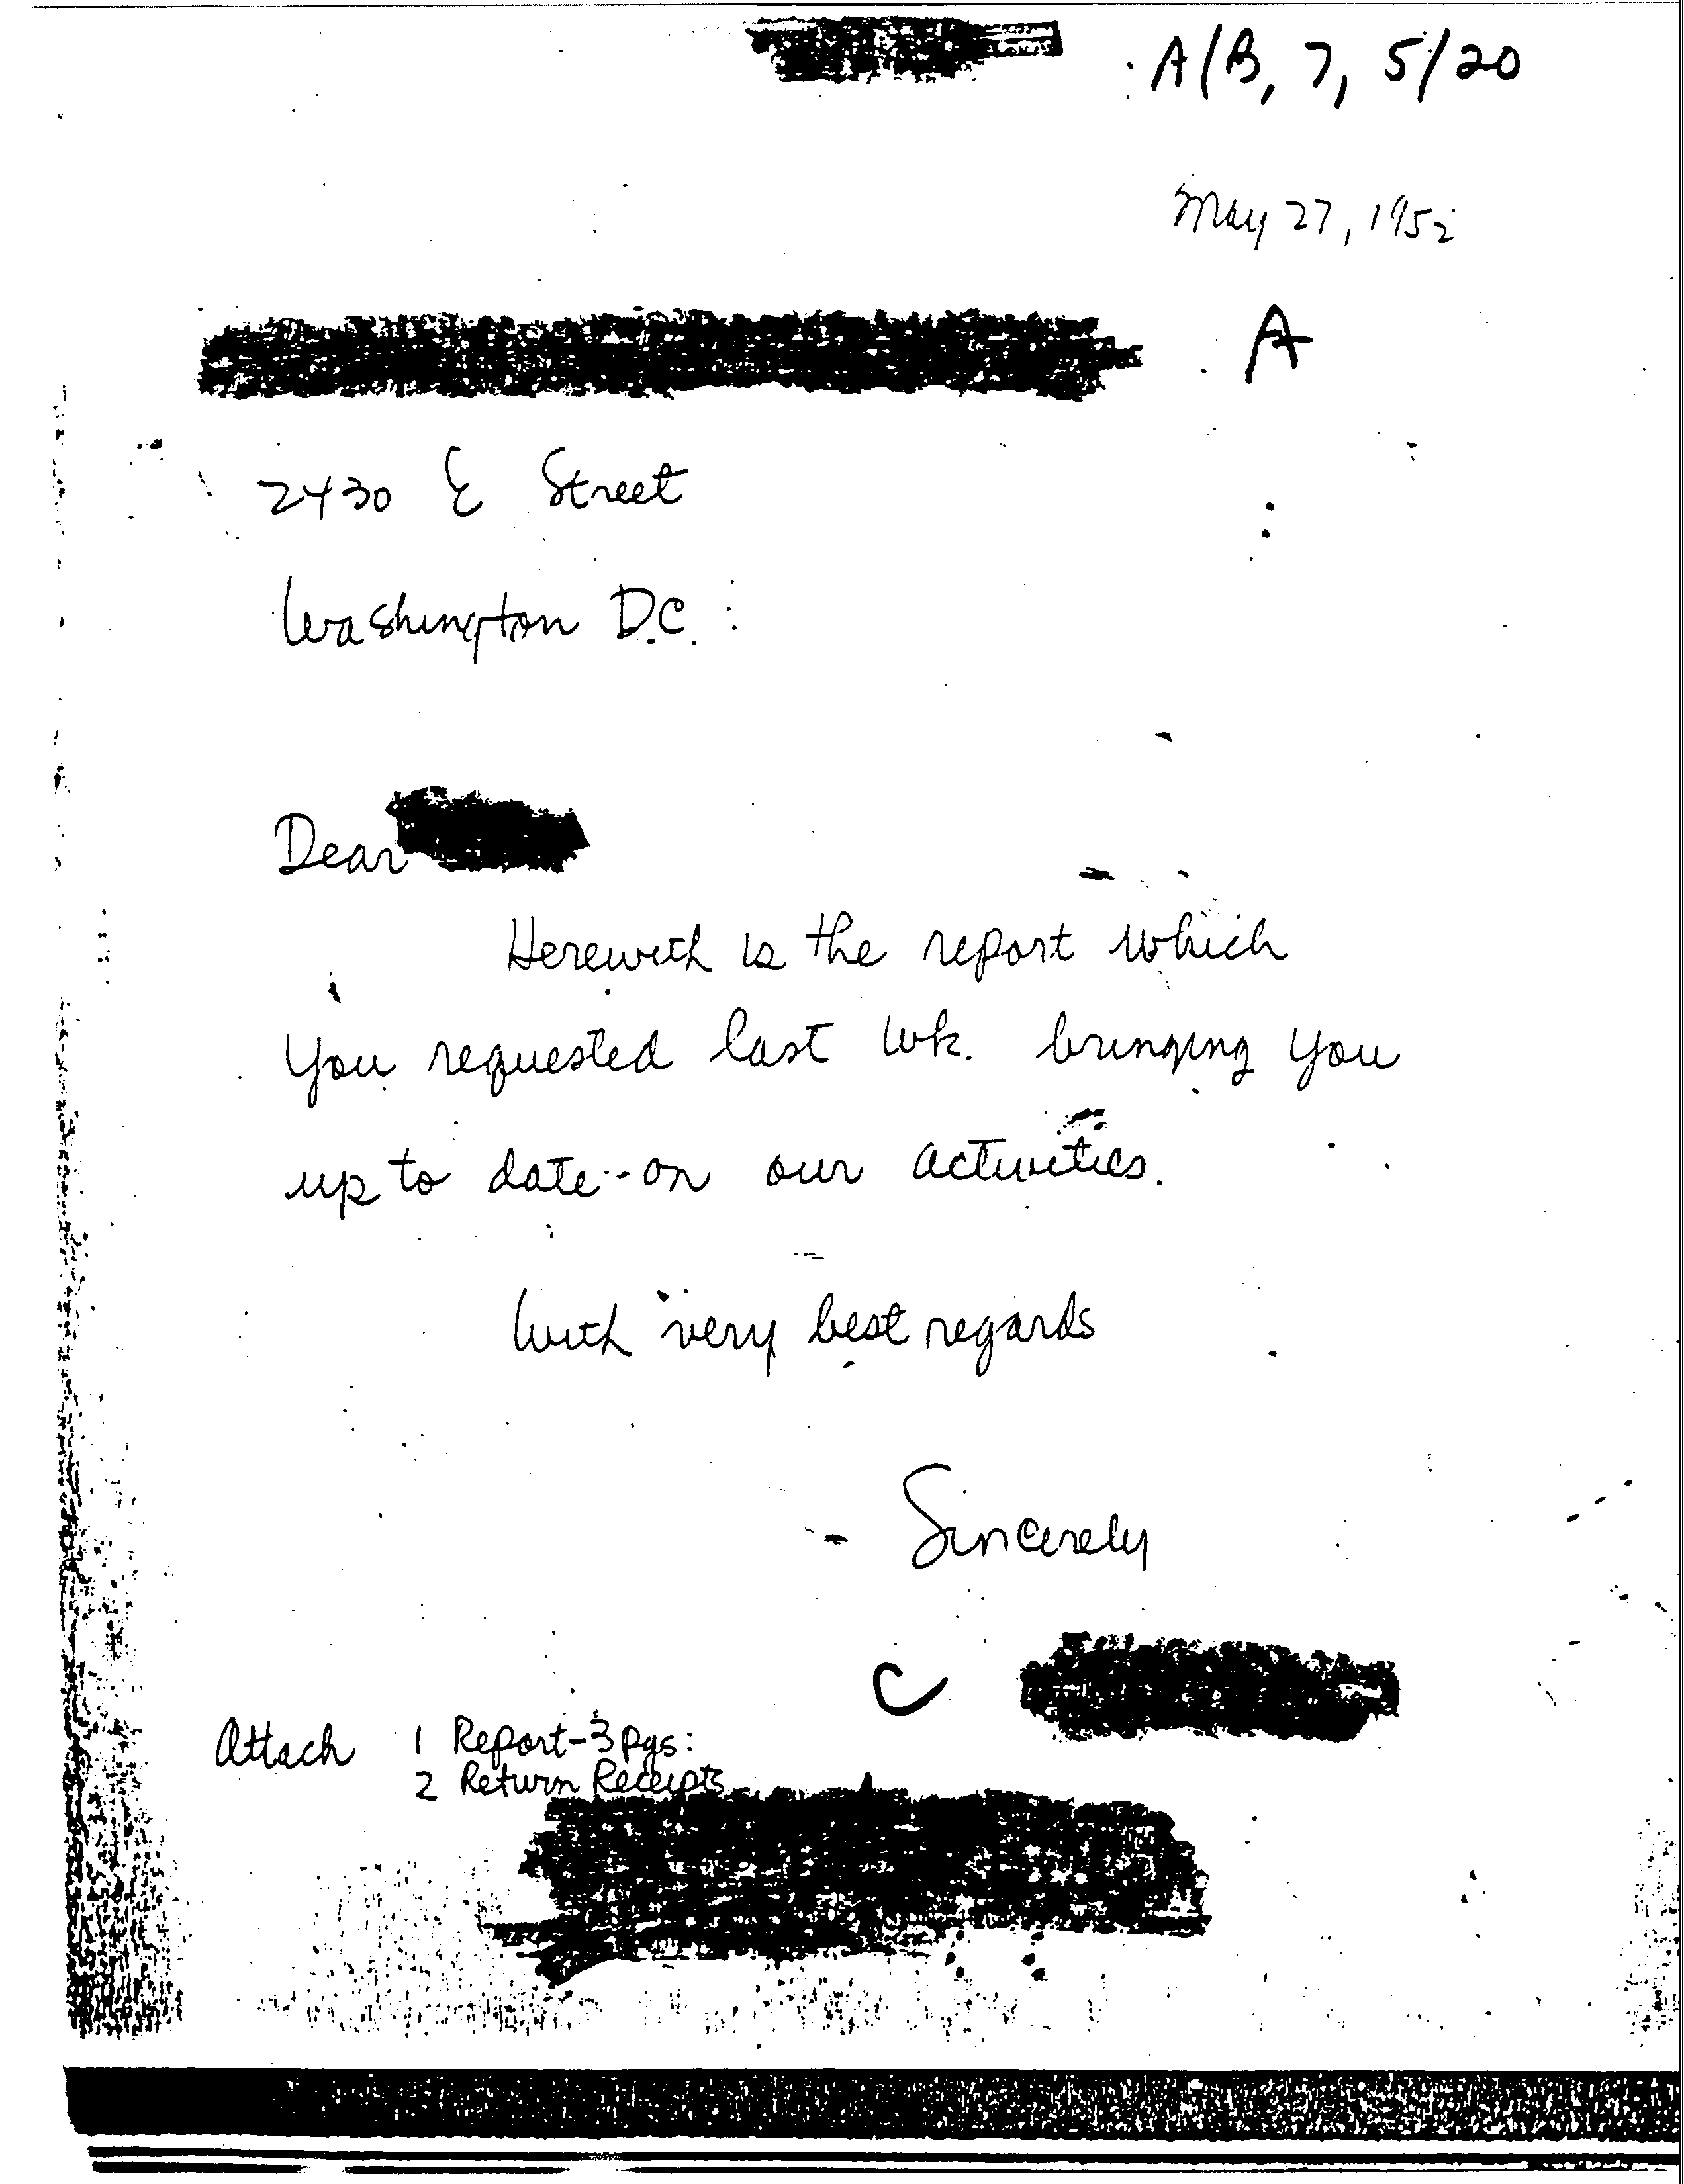 A/B, 7, 5/20
May 27, 1952
A
2430 E Street
Washington D.C.
Dear
Herewith is the report which
you requested last wk. bringing you
up to date on our activities.
With very best regards
Sincerely
C
Attach 1 Report-3 pgs:
2 Return Receipts